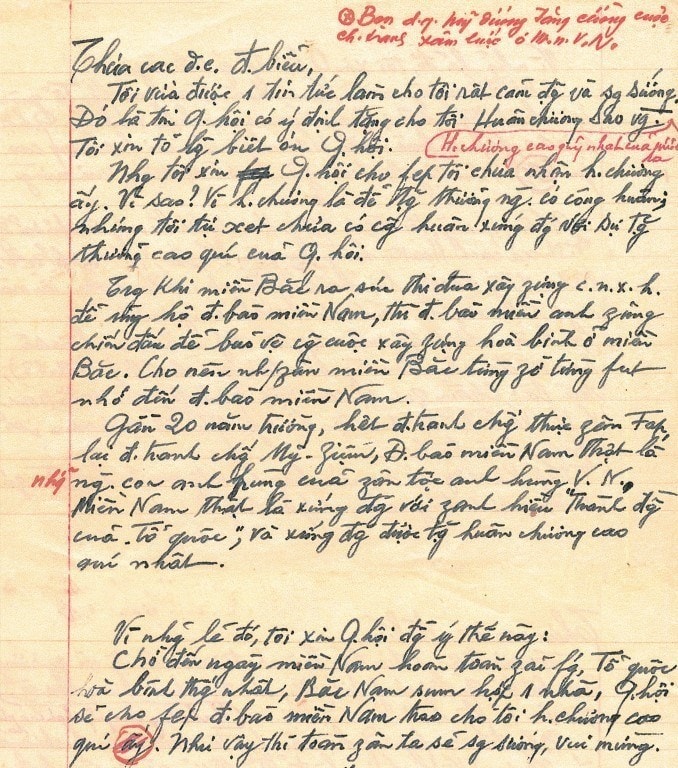 ⊗ Bọn đ.q. Mỹ đương tăng cường cuộc
ch. tranh xâm lược ở M.n. V.N.
Thưa các đ.c. đ. biểu,
Tôi vừa được 1 tin tức làm cho tôi rất cảm độ và sg sướng.
Đó là tin Q. hội có ý định tặng cho tôi Huân chương Sao vg.
H. chương cao quý nhất của nước
ta
Tôi xin tỏ lg biết ơn Q. hội.
Nhg tôi xin Q. hội cho fep tôi chưa nhận h. chương
ấy. Vì sao? Vì h. chương là để tặg thưởng ng. có công huân;
nhưng tôi tự xét chưa có cg huân xứng đg với sự tặg
thưởng cao quí của Q. hội.
Trg khi miền Bắc ra sức thi đua xây zựng c.n.x.h.
để ủng hộ đ. bào miền Nam, thì đ. bào miền anh zũng
chiến đấu để bảo vệ cg cuộc xây zựng hoà bình ở miền
Bắc. Cho nên nh/zân miền Bắc từng zờ từng fut
nhớ đến đ. bào miền Nam.
Gần 20 năm trường, hết đ. tranh chg thực zân Fap,
lại đ. tranh chg Mỹ-Ziệm, Đ. bào miền Nam thật là
nhg
ng. con anh hùng của zân tộc anh hùng V.N.
Miền Nam thật là xứng đg với zanh hiệu "Thành đg
của Tổ quốc", và xứng đg được tặg huân chương cao
quí nhất.
Vì nhg lẽ đó, tôi xin Q. hội đg ý thế này:
Chờ đến ngày miền Nam hoàn toàn zải fg, Tổ quốc
hoà bình thg nhất, Bắc Nam sum họp 1 nhà, Q. hội
sẽ cho fep đ. bào miền Nam trao cho tôi h. chương cao
quí ấy. Như vậy thì toàn zân ta sẽ sg sướng, vui mừng.